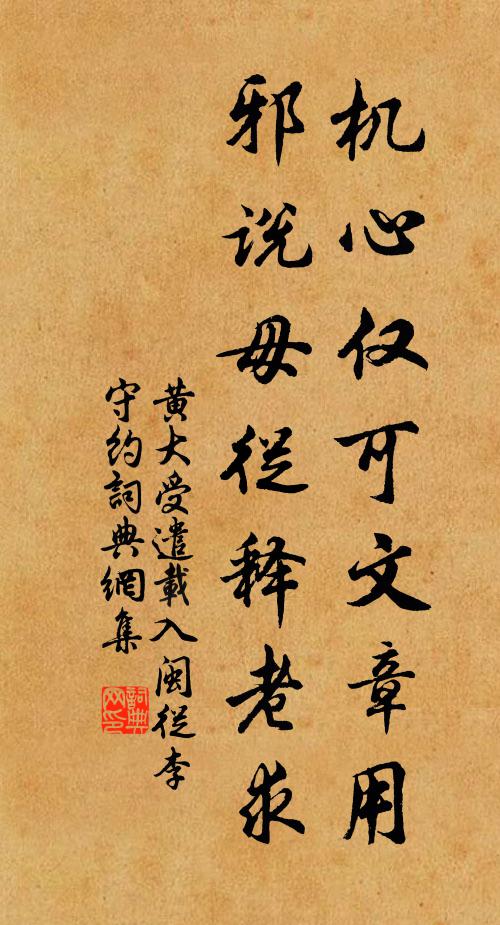 机心仅可文章用
邪说毋从释老求
黄大受遣載入闽從李
守约詞典網集
詞典网印